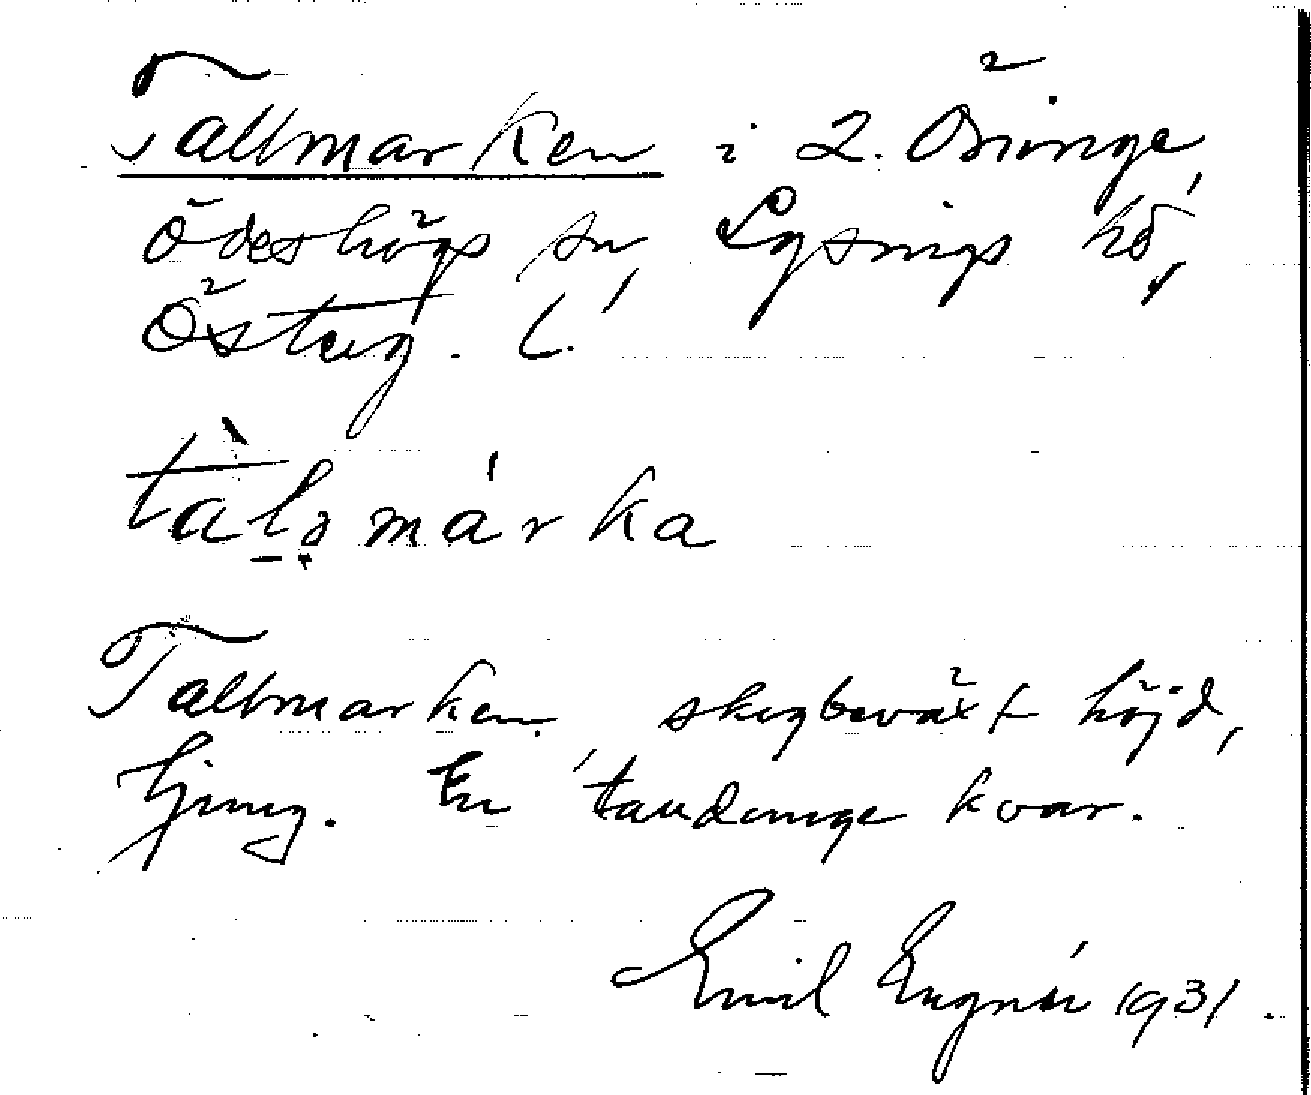 Tallmarken i L. Öringe,
Ödeshögs sn, Lysings hd,
Österg. l.
tàl̠ə márka
Tallmarken skogbeväxt höjd,
ljung. En taudunge kvar.
Emil Engnér 1931.